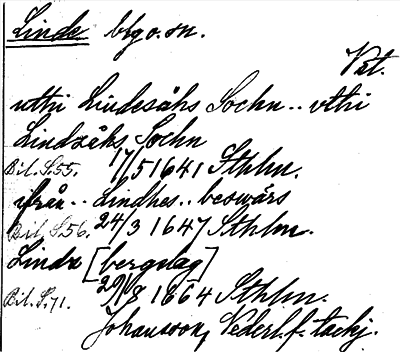 Linde blg o. sn.
Vstl.
uthi Lindesåhs Sochn .. vthi
Lindzåhs Sochn
Bil. S. 55. 17/5 1641 Sthlm.
ifrån .. Lindhes .. beswärs
Bil. S. 56. 24/3 1647 Sthlm.
Linde [bergslag]
Bil. S. 71. 29/8 1664 Sthlm.
Johansson, Nederl. f. tackj.